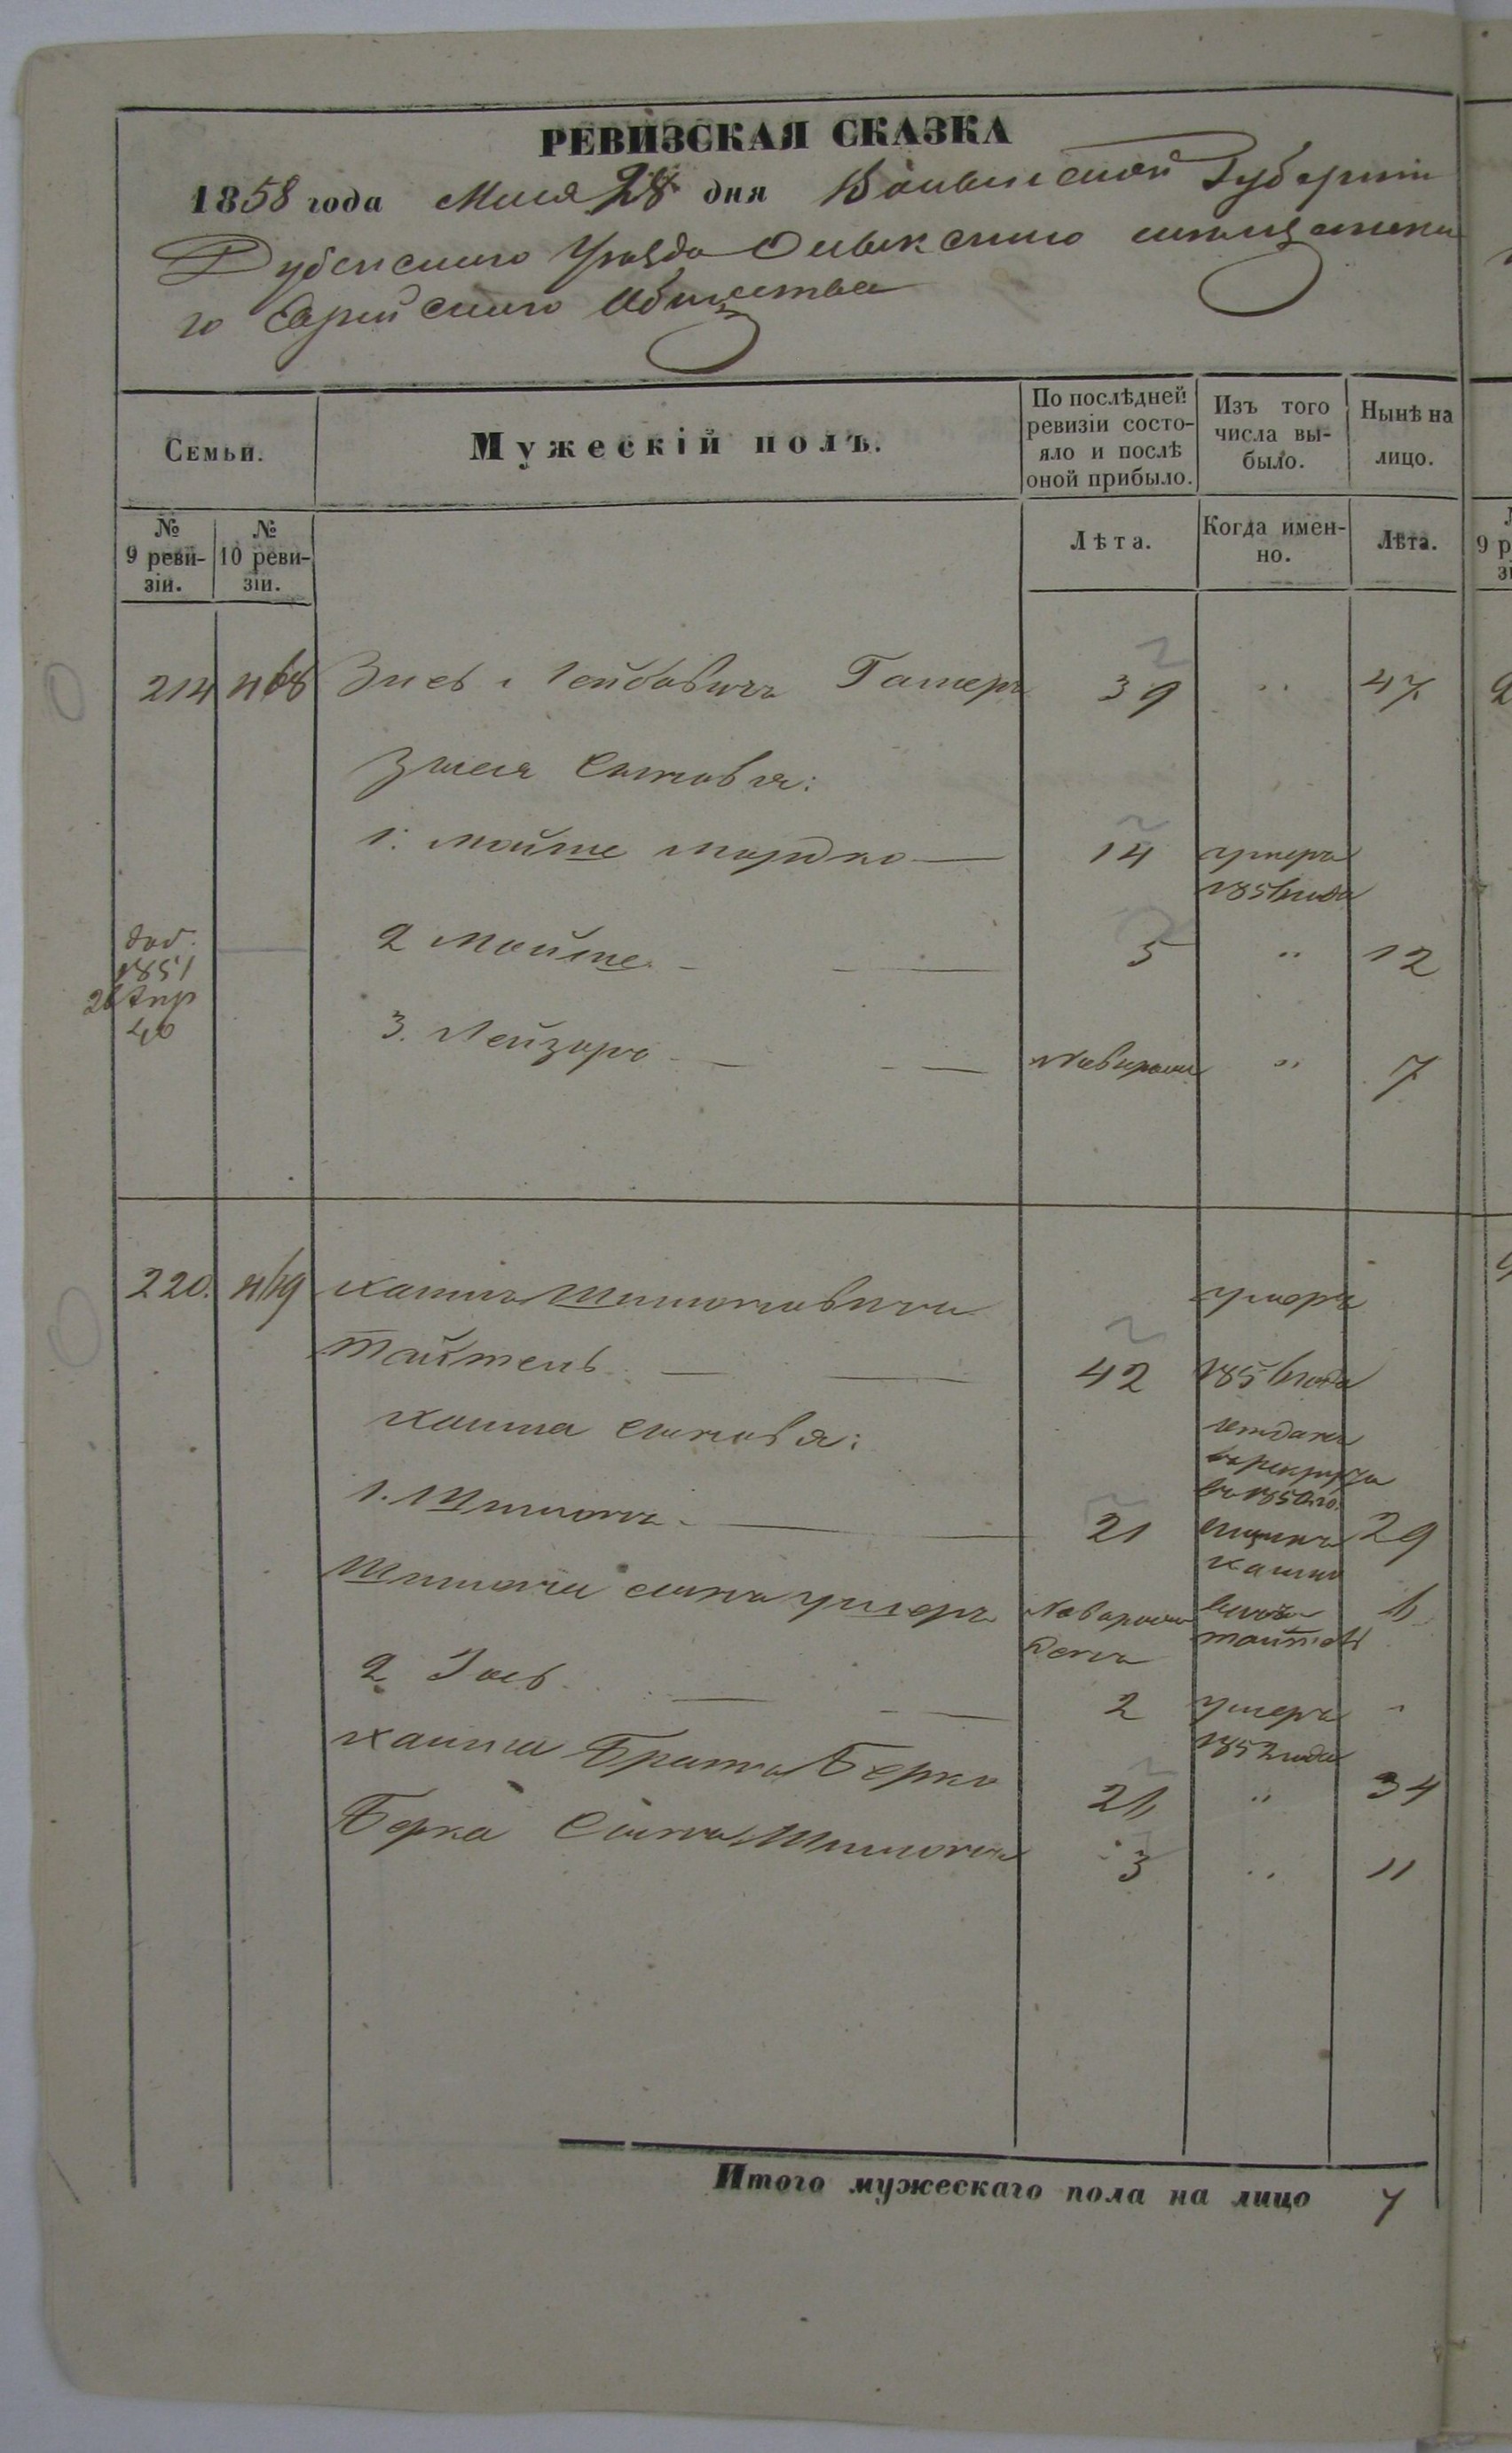 РЕВИЗСКАЯ СКАЗКА
1858 года Мая 28 дня Волынской Губерніи
Дубенскаго Уѣзда Олыкскаго мѣщанска
го Еврейскаго Общества
Семьи.
Мужескій полъ.
По послѣдней ревизіи состо-
яло и послѣ
оной прибыло.
Изъ того
числа вы-
было.
Нынѣ на
лицо.
№
9 реви-
зіи.
№
10 реви-
зіи.
Лѣта.
Когда имен-
но.
Лѣта.
214 468 Лейбовичъ 39 " 47
сыновья:
1. Мойше Мордко — 14 умеръ
1856 года
2 Мойше — 5 " 12
3. Лейзоръ — — " 7
1851
220. 469 Хаимъ Шимоновичъ умеръ
Тайтель — 42 1856 года
Хаима сыновья:
отданъ
въ рекруты
1. Шимонъ — 21 29
Шимона сынъ Ушеръ Новорож
денъ 6
2 — — 2 умеръ
1852 года
Хаима Братъ Берко 26 " 34
Берка Сынъ Шимонъ 3 " 11
Итого мужескаго пола на лицо 7